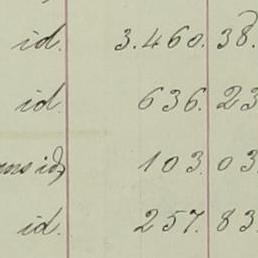 id. 3.460. 38.
id. 636. 23
id) 103. 03.
id. 257. 83.